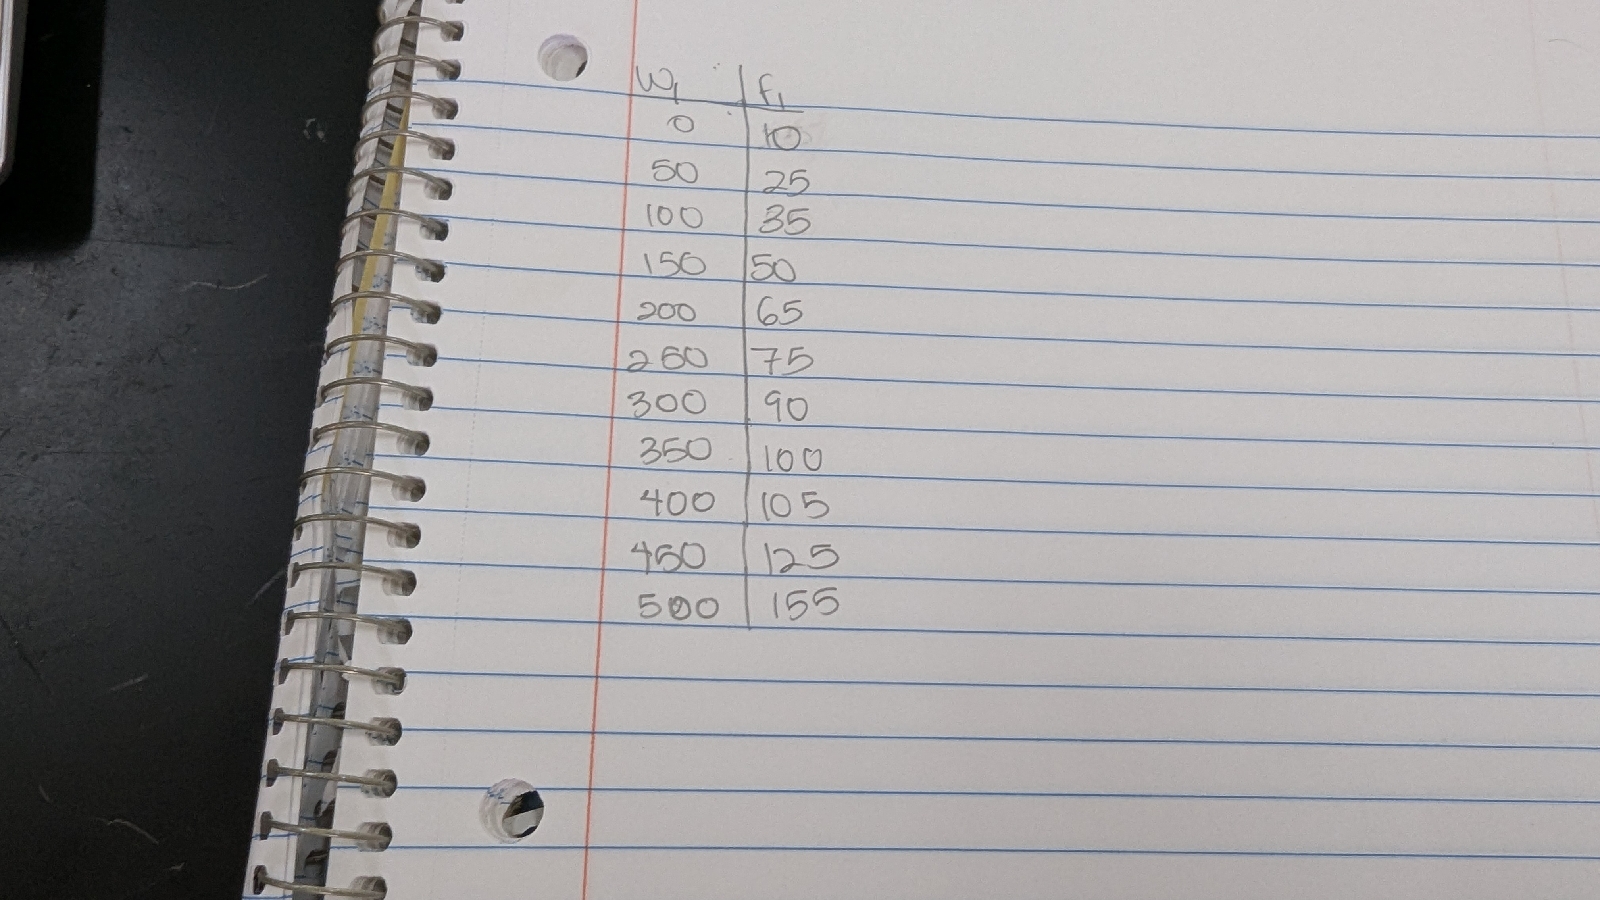 W₁ F₁
0 10
50 25
100 35
150 50
200 65
250 75
300 90
350 100
400 105
450 125
500 155